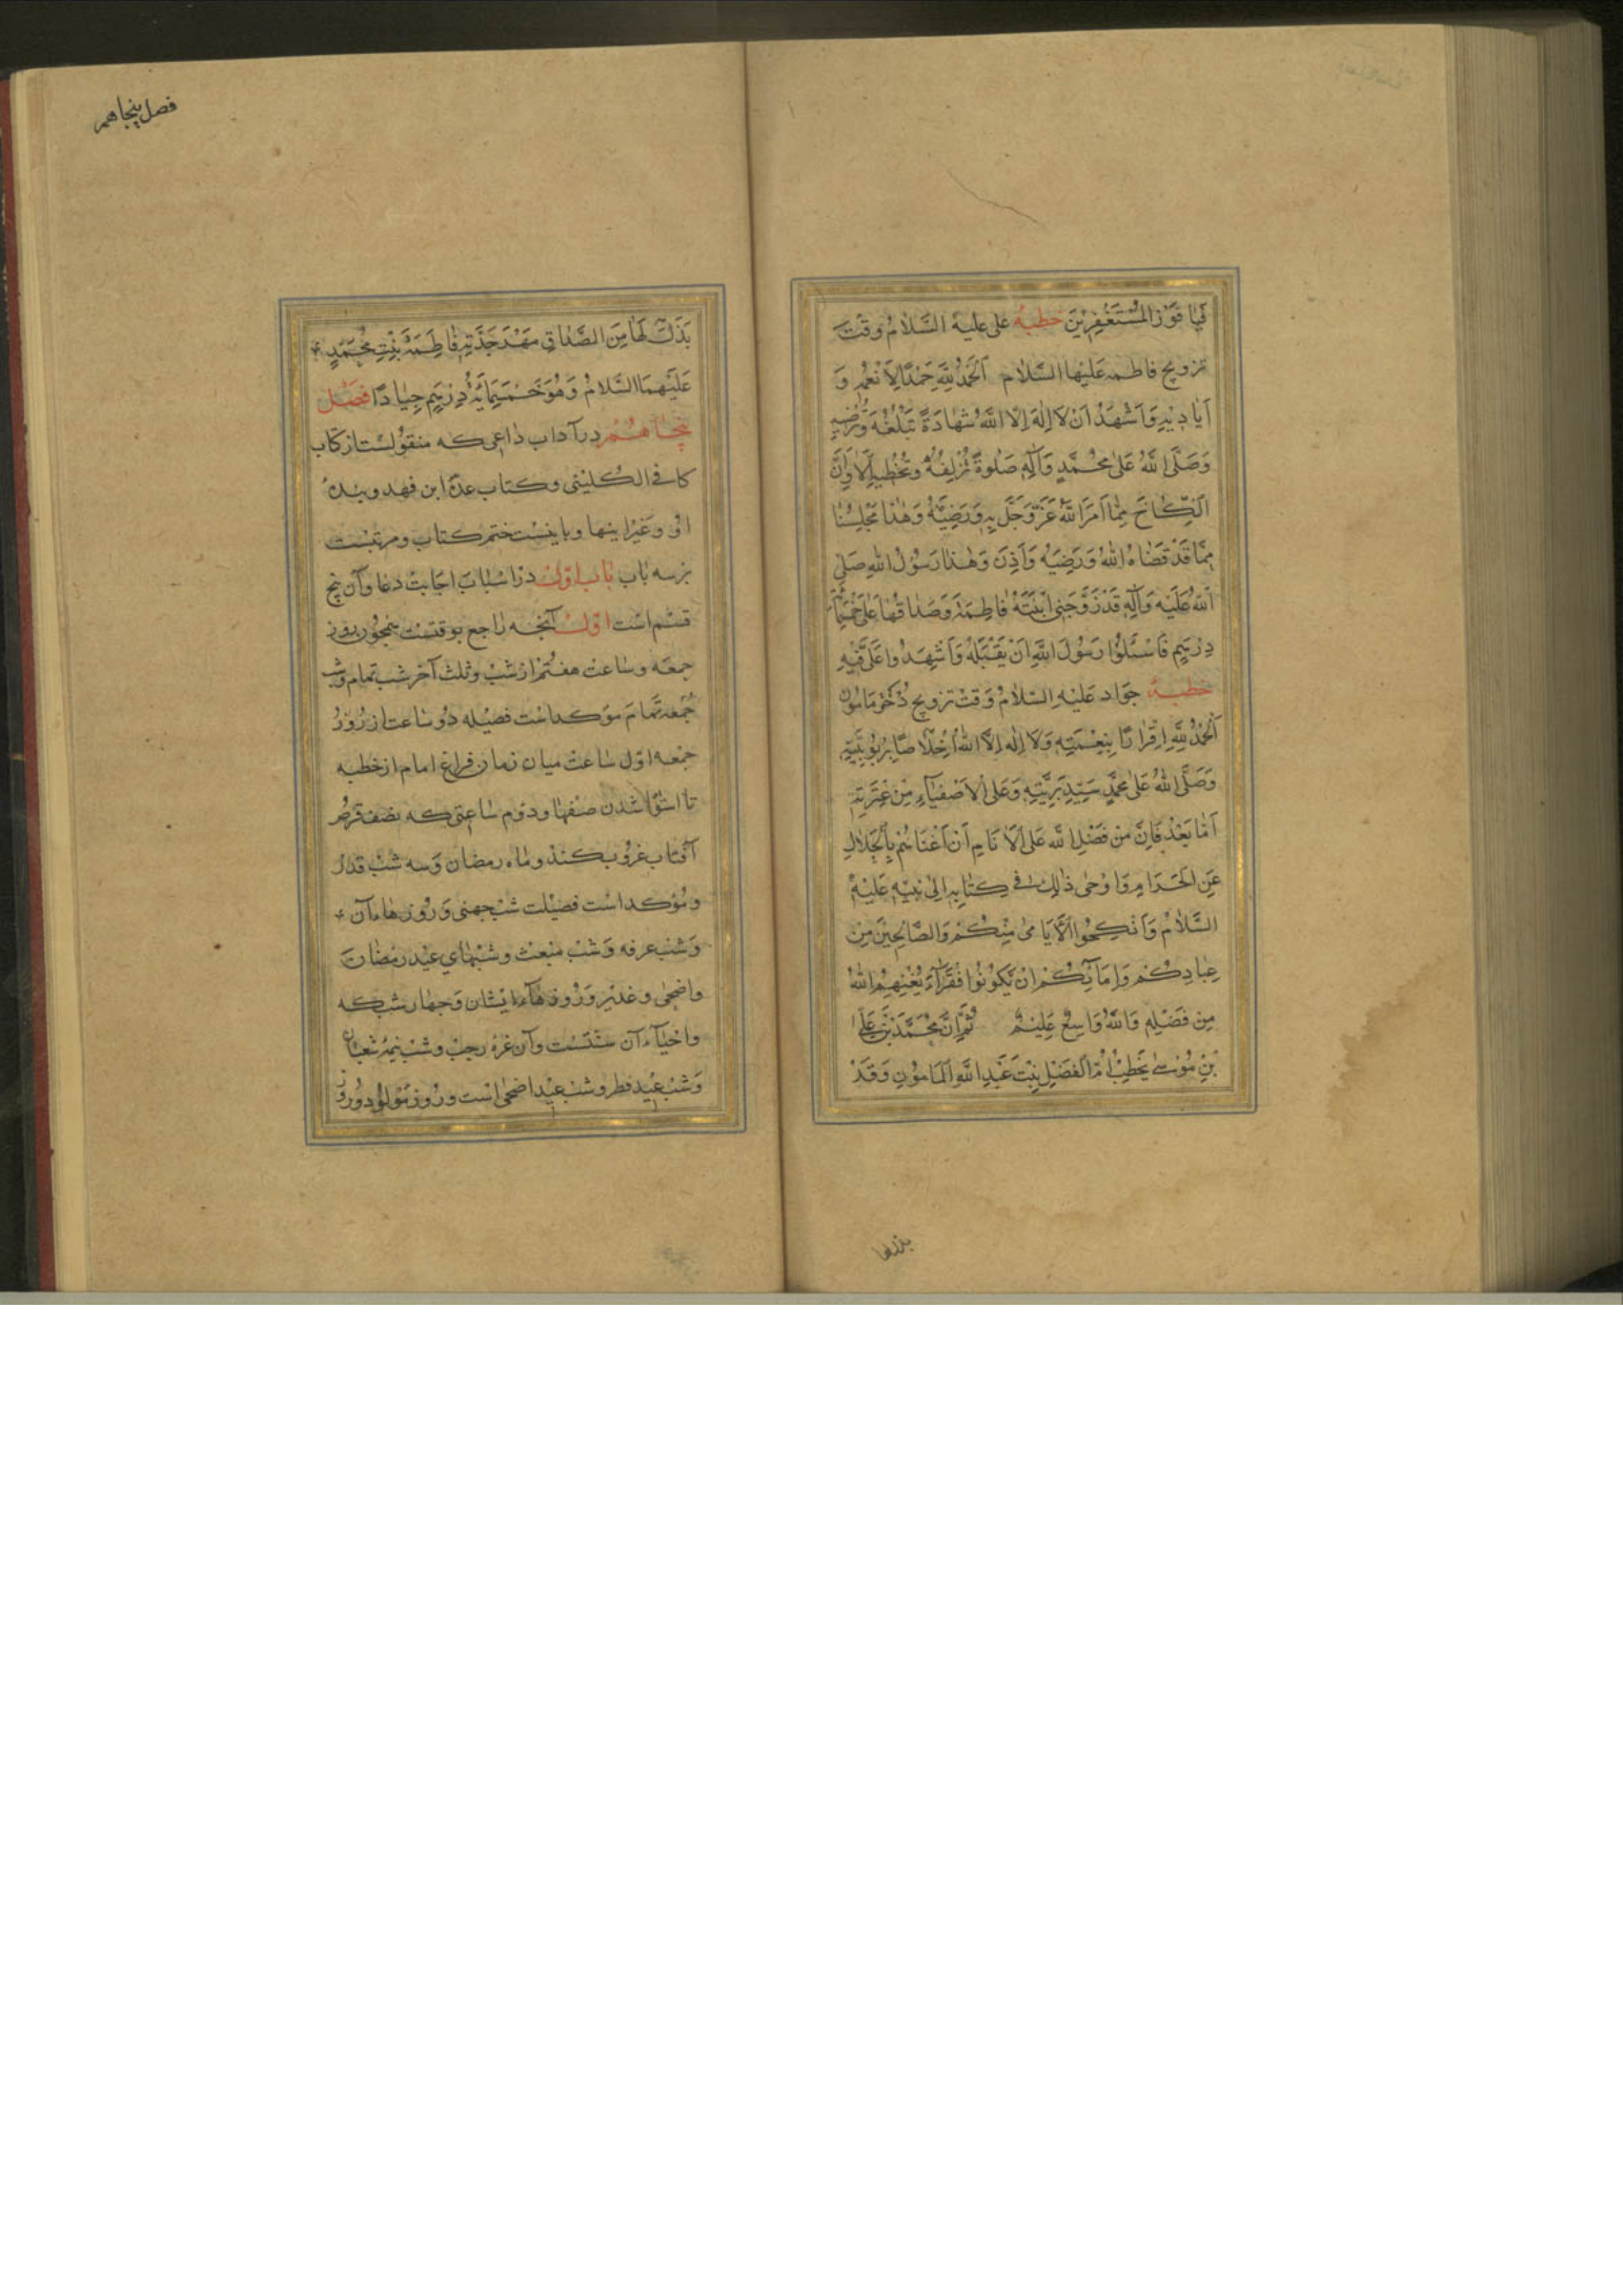 فَيَا فَوْزَ الْمُسْتَغْفِرِيْنَ خطبهٔ على عليه السَّلامُ وقت
تزويج فاطمه عَلَيْهَا السَّلامُ اَلْحَمْدُ لِلّٰهِ حَمْدًا لِاَنْعُمِهِ وَ
اَيَادِيْهِ وَاَشْهَدُ اَنْ لَا اِلٰهَ اِلَّا اللّٰهُ شَهَادَةً تَبْلُغُهُ وَتُرْضِيْهِ
وَصَلَّى اللّٰهُ عَلىٰ مُحَمَّدٍ وَآلِهِ صَلٰوةً تُزْلِفُهُ وَتُحْظِيْهِ اَلَا وَاِنَّ
النِّكَاحَ مِمَّا اَمَرَ اللّٰهُ عَزَّ وَجَلَّ بِهِ وَرَضِيَهُ وَهٰذَا مَجْلِسُنَا
مِمَّا قَدْ قَضَاهُ اللّٰهُ وَرَضِيَهُ وَاَذِنَ وَهٰذَا رَسُوْلُ اللّٰهِ صَلَّى
اللّٰهُ عَلَيْهِ وَآلِهِ قَدْ زَوَّجَنِى ابْنَتَهُ فَاطِمَةَ وَصَدَاقُهَا عَلَىَّ خَمْسُمِائَةِ
دِرْهَمٍ فَاسْئَلُوْا رَسُوْلَ اللّٰهِ اَنْ يَقْبَلَهُ وَاَشْهِدُوا عَلَىَّ فِيْهِ
خطبهٔ جواد عَلَيْهِ السَّلامُ وَقت تزويج دُختر مامون
اَلْحَمْدُ لِلّٰهِ اِقْرَارًا بِنِعْمَتِهِ وَلَا اِلٰهَ اِلَّا اللّٰهُ اِخْلَاصًا بِرُبُوْبِيَّتِهِ
وَصَلَّى اللّٰهُ عَلىٰ مُحَمَّدٍ سَيِّدِ بَرِيَّتِهِ وَعَلَى الْاَصْفِيَاءِ مِنْ عِتْرَتِهِ
اَمَّا بَعْدُ فَاِنَّ مِنْ فَضْلِ اللّٰهِ عَلَى الْاَنَامِ اَنْ اَغْنَاهُمْ بِالْحَلَالِ
عَنِ الْحَرَامِ وَاَوْحىٰ ذٰلِكَ فِى كِتَابِهِ اِلىٰ نَبِيِّهِ عَلَيْهِ
السَّلَامُ وَاَنْكِحُوا الْاَيَامىٰ مِنْكُمْ وَالصَّالِحِيْنَ مِنْ
عِبَادِكُمْ وَاِمَائِكُمْ اِنْ يَكُوْنُوا فُقَرَآءَ يُغْنِهِمُ اللّٰهُ
مِنْ فَضْلِهِ وَاللّٰهُ وَاسِعٌ عَلِيْمٌ ثُمَّ اِنَّ مُحَمَّدَ بْنَ عَلِىِّ
بْنِ مُوْسىٰ يَخْطِبُ اُمَّ الْفَضْلِ بِنْتَ عَبْدِ اللّٰهِ الْمَامُوْنِ وَقَدْ
بذلها
فصل پنجاهم
بَذَلَ لَهَا مِنَ الصَّدَاقِ مَهْرَ جَدَّتِهِ فَاطِمَةَ بِنْتِ مُحَمَّدٍ
عَلَيْهِمَا السَّلَامُ وَهُوَ خَمْسُمِائَةِ دِرْهَمٍ جِيَادًا فَصْل
پنجاهُم در آداب داعى كه منقولست از كتاب
كافى الكلينى وكتاب عدّهٔ ابن فهد وبنده
او وغير اينها وباينست ختم كتاب ومرتبست
بر سه باب باب اول در اسباب اجابت دعا وآن پنج
قسم است اول آنچه راجع بوقتست همچون روز
جمعه وساعت هفتم از شب وثلث آخر شب تمام وشب
جمعه تمام مؤكد است فضيله دو ساعت از روز
جمعه اول ساعت ميان زمان فراغ امام از خطبه
تا استوا شدن صفها ودوم ساعتى كه نصف قرص
آفتاب غروب كند وماه رمضان وسه شب قدر
ومؤكد است فضيلت شب جهنى وروزهاء آن
وشب عرفه وشب مبعث وشبهاى عيد رمضان
واضحى وغدير وروزهاء ايشان وچهار شب كه
واحياء آن سنتست وآن غره رجب وشب نيمه شعبان
وشب عيد فطر وشب عيد اضحى است وروز مولود وروز